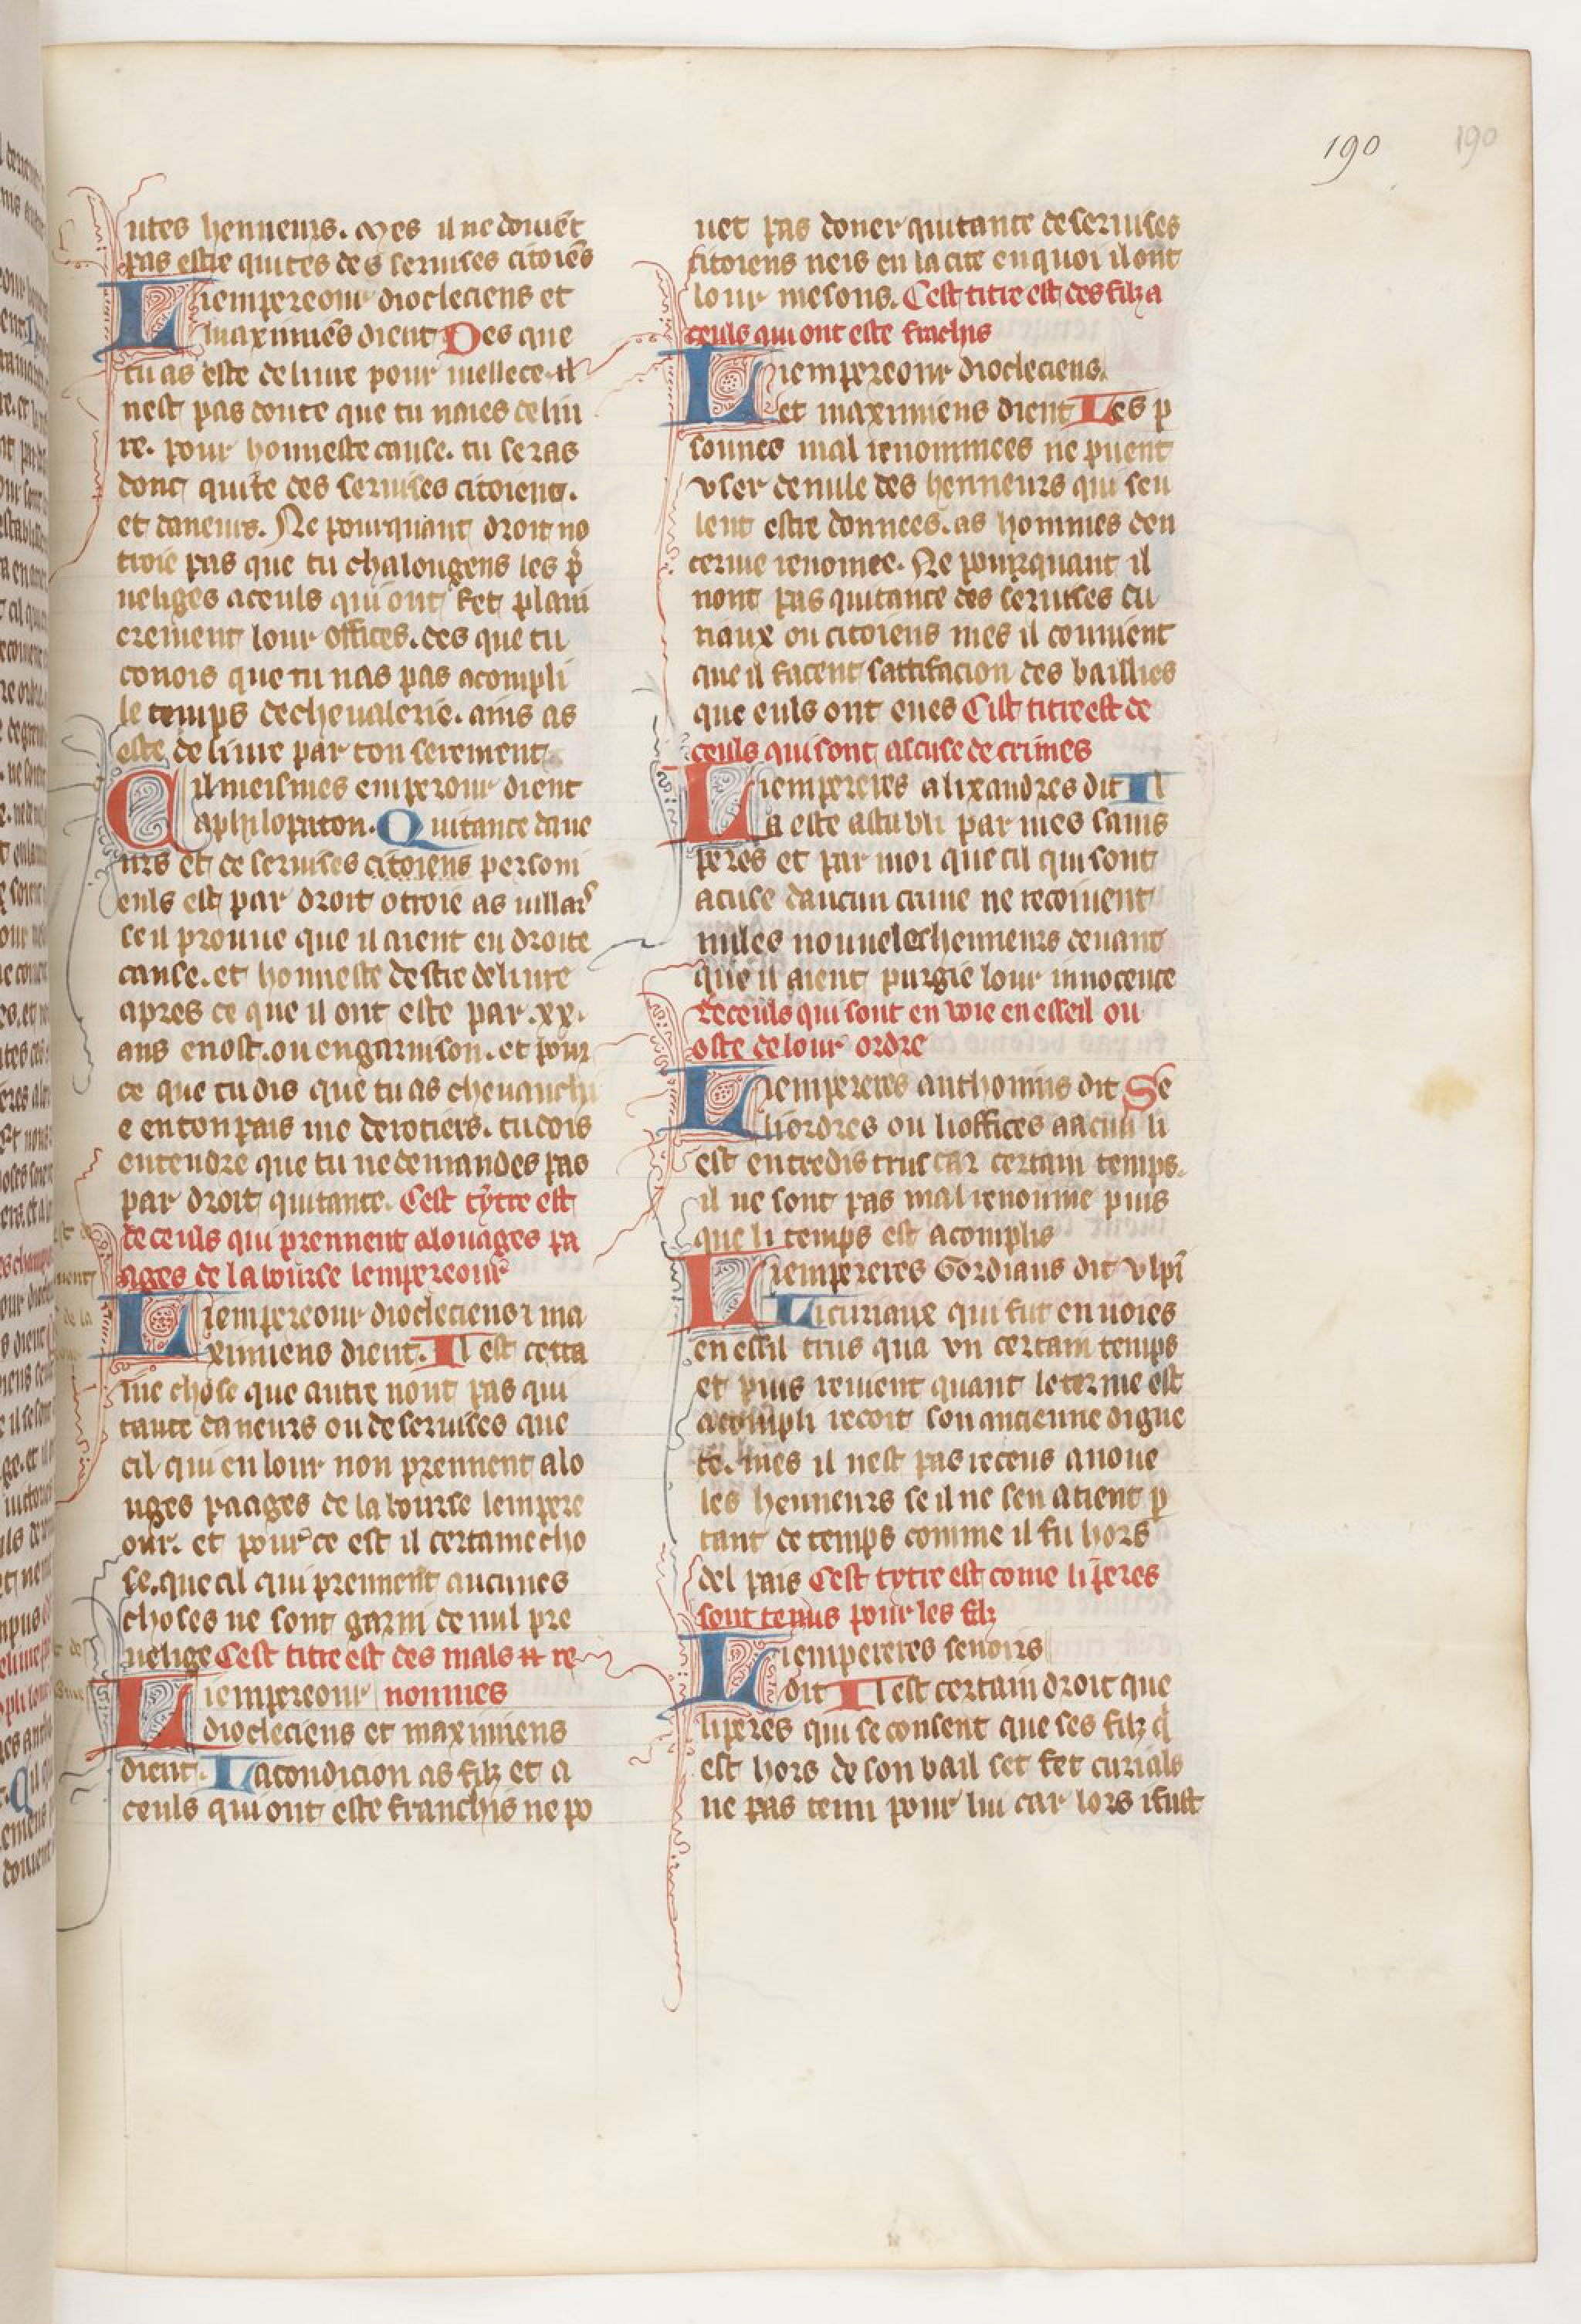 190 190
utes henneurs. Mes il ne doiuēt
pas estre quites des seruises citoiēs
Li empereour diocleciens et
maximiēs dient Des que
tu as este deliure pour viellece. il
nest pas doute que tu naies deliu
re. pour honneste cause. tu seras
donc quite des seruises citoiens.
et daneurs. Ne pourquant droit no
troie pas que tu chalonges les p̄
ueliges aceuls qui ont fet plani
erement lour offices. des que tu
conois que tu nas pas acompli
le temps de cheualerie. ains as
este deliure par ton serement
Cil meismes emperour dient
a philopaton. Quitance dane
urs et de seruises citoiens person
euls est par droit otroie as uillars
se il prouue que il aient eu droite
cause. et honneste destre deliure
apres ce que il ont este par .xx.
ans en ost. ou en garnison. et pour
ce que tu dis que tu as cheuauchi
e en ton pais me derotiers. tu dois
entendre que tu ne demandes pas
par droit quitance. Cest tytre est
de ceuls qui prennent alouages pa
ages de la bourse lempereour
Li empereour diocleciens ⁊ ma
ximiens dient. Il est certa
ine chose que autre nont pas qui
tance daneurs ou de seruises que
cil qui en lour non prennent alo
uges paages de la bourse lempere
our. et pour ce est il certaine cho
se. que cil qui prennent aucunes
choses ne sont garni de nul pre
uelige Cest titre est des mals re
Li empereour nonmes
diocleciens et maximiens
dient. La condicion as filz et a
ceuls qui ont este franchis ne po
uet pas doner quitance de seruises
citoiens neis en la cite en quoi il ont
lour mesons. Cest titre est des filz a
ceuls qui ont este frachis
Li empereour diocleciens.
et maximiens dient Les p
sonnes mal renommees ne puent
vser de nule des henneurs qui seu
lent estre donnees. as hommes den
terine renomee. Ne pourquant il
nont pas quitance des seruises cu
riaux ou citoiens mes il couuient
que il facent sattifacion des baillies
que euls ont eues Cist titre est de
ceuls qui sont ascuse de crimes
Li empereres alixandres dit Il
a este establi par mes sains
peres et par moi que cil qui sont
acuse daucun crime ne recoiuent
nules nouueles henneurs deuant
que il aient purgie lour innocence
de ceuls qui sont en voie en esseil ou
oste de lour ordre
Li empereres anthonins dit Se
li ordres ou li offices aucun li
est entredis trusca certain temps.
il ne sont pas mal renoume puis
que li temps est acomplis
Li empereres Gordians dit vlpī
Li curiaux qui fut en uoies
en essil trus qua vn certain temps
et puis reuient quant le terme est
acompli recoit son ancienne digne
te. mes il nest pas receus a noue
les henneurs se il ne sen atient p
tant de temps comme il fu hors
del pais Cest tytre est come li peres
sont tenus pour les filz
Li empereres seuoirs
dit Il est certain droit que
li peres qui se consent que ses filz q̄
est hors de son bail set fet curials
ne pas tenu pour lui car lors ifust